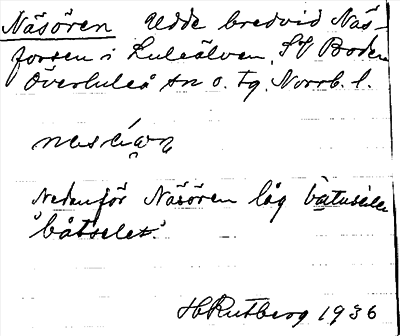 Näsören Udde bredvid Näs-
forsen i Luleälven, SV Boden
Överluleå sn o. tg. Norrb. l.
Nedanför Näsören låg båtusele
'båtselet'.
H Rutberg 1936